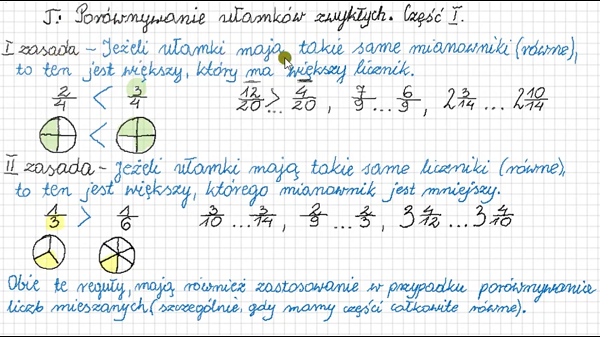 T: Porównywanie ułamków zwykłych. Część I.
I zasada - Jeżeli ułamki mają takie same mianowniki (równe),
to ten jest większy, który ma większy licznik.
2/4 < 3/4 12/20 > 4/20, 7/9 ... 6/9, 2 3/14 ... 2 10/14
<
II zasada - Jeżeli ułamki mają takie same liczniki (równe),
to ten jest większy, którego mianownik jest mniejszy.
1/3 > 1/6 3/10 ... 3/14, 2/9 ... 2/3, 3 4/12 ... 3 4/10
Obie te reguły, mają również zastosowanie w przypadku porównywania
liczb mieszanych (szczególnie, gdy mamy części całkowite równe).